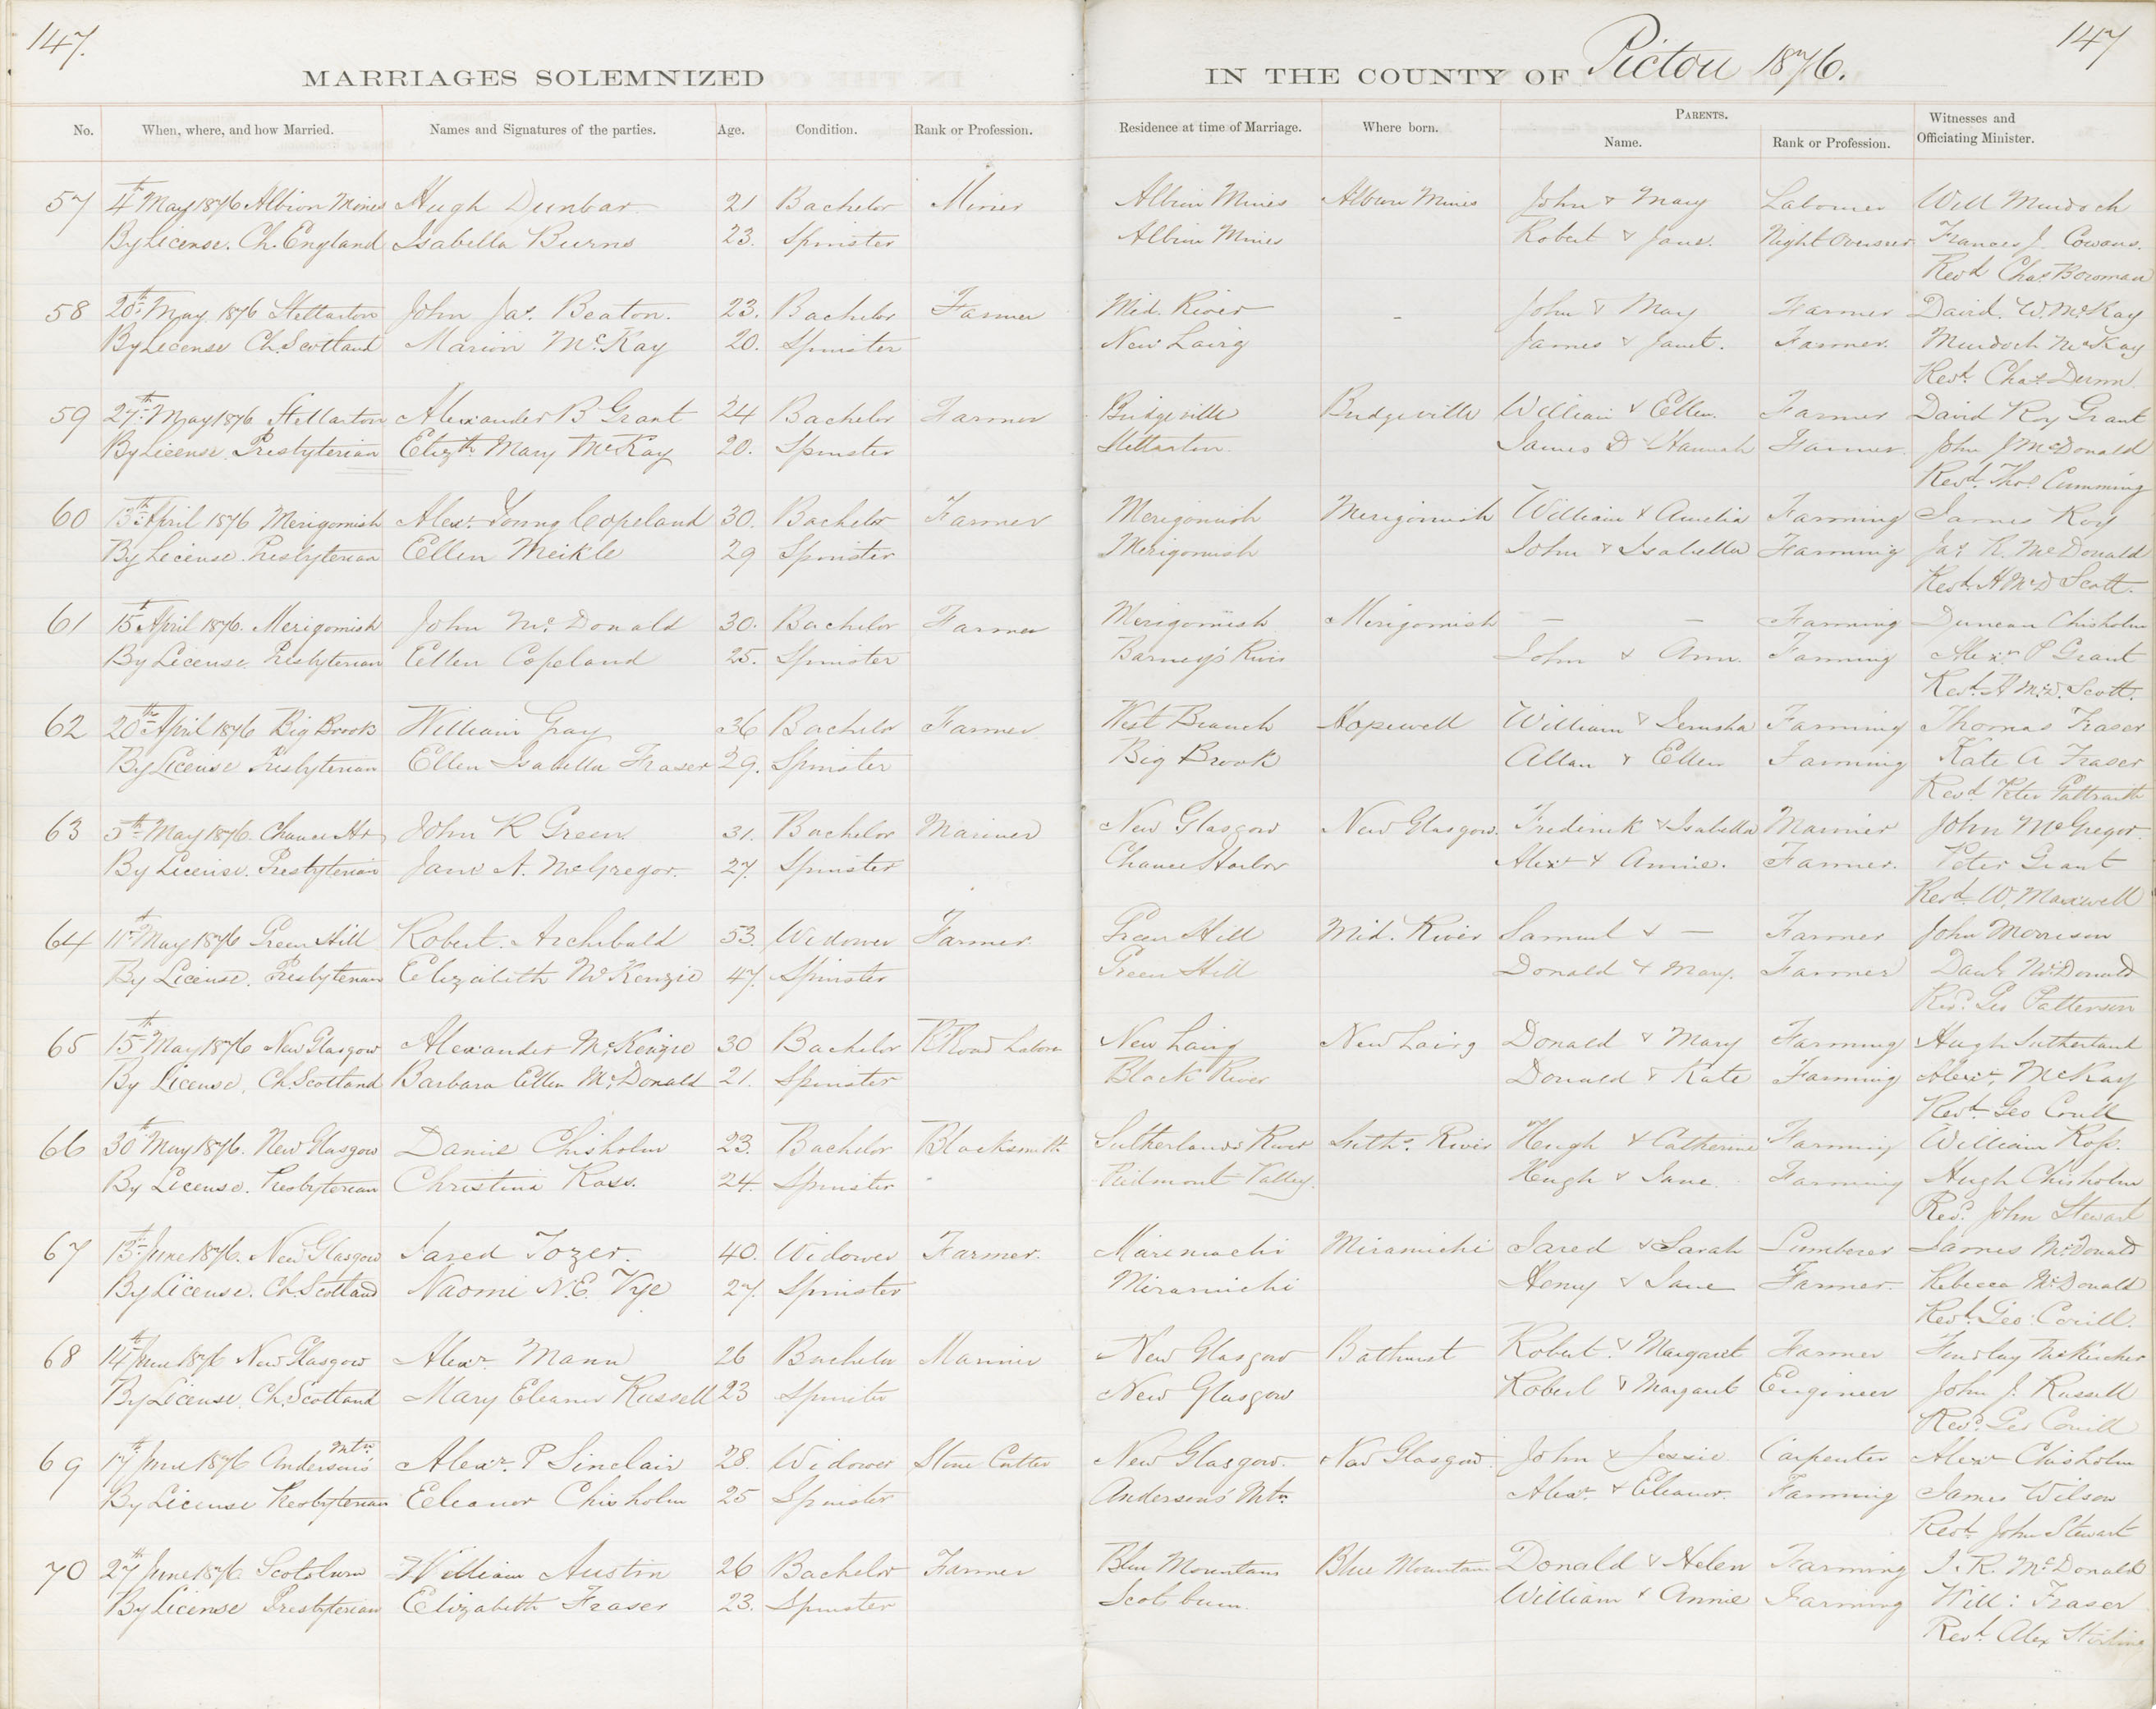 147.
147
MARRIAGES SOLEMNIZED IN THE COUNTY OF Pictou 1876.
No. When, where, and how Married. Names and Signatures of the parties. Age. Condition. Rank or Profession. Residence at time of Marriage. Where born. PARENTS. Name. Rank or Profession. Witnesses and Officiating Minister.
57 4th May 1876 Albion Mines Hugh Dunbar 21 Bachelor Miner Albion Mines Albion Mines John & Mary Labourer Will Murdoch
By License. Ch. England Isabella Burns 23. Spinster Albion Mines Robert & Jane. Night Overseer Frances J. Cowans.
Revd Chas Bowman
58 20th May 1876 Stellarton John Jas. Beaton. 23. Bachelor Farmer Mid. River - John & Mary Farmer David. W. McKay
By License Ch. Scotland Marion McKay 20. Spinster New Lairg James & Janet. Farmer. Murdoch McKay
Revd. Chas. Dunn
59 27th May 1876 Stellarton Alexander B Grant 24 Bachelor Farmer Bridgeville Bridgeville William & Ellen Farmer David Roy Grant
By License. Presbyterian Elizth Mary McKay 20. Spinster Stellarton James D & Hannah Farmer. John J McDonald
Revd. Thos Cumming
60 13th April 1876 Merigomish Alexr. Young Copeland 30. Bachelor Farmer Merigomish Merigomish William & Amelia Farming James Roy
By License. Presbyterian Ellen Meikle 29 Spinster Merigomish John & Isabella Farming Jas. R. McDonald
Revd. A McD Scott.
61 15th April 1876. Merigomish John McDonald 30. Bachelor Farmer Merigomish Merigomish — — Farming Duncan Chisholm
By License. Presbyterian Ellen Copeland 25. Spinster Barney's River John & Ann. Farming Alexr. P Grant
Revd. A McD. Scott.
62 20th April 1876 Big Brook William Gray 36 Bachelor Farmer West Branch Hopewell William & Jerusha Farming Thomas Fraser
By License Presbyterian Ellen Isabella Fraser 29. Spinster Big Brook Allan & Ellen Farming Kate A Fraser
Revd Peter
63 5th May 1876. Chance Hr John R Green. 31. Bachelor Mariner New Glasgow New Glasgow. Frederick & Isabella Mariner John McGregor.
By License. Presbyterian Jane A. McGregor. 27. Spinster Chance Harbor Alexr & Annie. Farmer. Peter Grant
Revd. W. Maxwell
64 11th May 1876 Green Hill Robert. Archibald 53. Widower Farmer Green Hill Mid. River Samuel & — Farmer John Morrison
By License. Presbyterian Elizabeth McKenzie 47. Spinster Green Hill Donald & Mary. Farmer McDonald
Revd. Geo Patterson
65 15th May 1876 New Glasgow Alexander McKenzie 30 Bachelor R. Road Labor New Lairg New Lairg Donald & Mary Farming Hugh Sutherland
By License, Ch. Scotland Barbara Ellen McDonald 21. Spinster Black River Donald & Kate Farming Alexr. McKay
Revd. Geo Coull
66 30th May 1876. New Glasgow Daniel Chisholm 23. Bachelor Blacksmith Sutherlands River Suths. River Hugh & Catherine Farming William Ross.
By License. Presbyterian Christina Ross. 24. Spinster Piedmont Valley. Hugh & Jane Farming Hugh Chisholm
Revd. John Stewart
67 13th June 1876. New Glasgow Jared Tozer. 40. Widower Farmer. Miramichi Miramichi Jared & Sarah Lumberer James McDonald
By License. Ch. Scotland Naomi N.E. Vye 27. Spinster Miramichi Henry & Jane Farmer. Rebecca McDonald
Revd. Geo. Coull.
68 14th June 1876 New Glasgow Alexr. Mann 26 Bachelor Mariner New Glasgow Bathurst Robert & Margaret Farmer Findlay McKercher
By License, Ch. Scotland Mary Eleanor Russell 23 Spinster New Glasgow Robert & Margaret Engineer John J. Russell
Revd. Geo Coull
69 17th June 1876 Anderson's Mtn Alexr. P Sinclair 28. Widower Stone Cutter New Glasgow. New Glasgow. John & Jessie Carpenter Alexr Chisholm
By License Presbyterian Eleanor Chisholm 25 Spinster Anderson's Mtn. Alexr. & Eleanor. Farming James Wilson
Revd. John Stewart
70 27th June 1876 Scotsburn William Austin 26 Bachelor Farmer Blue Mountain Blue Mountain Donald & Helen Farming J. R. McDonald
By License Presbyterian Elizabeth Fraser 23. Spinster Scotsburn. William & Annie Farming Will: Fraser
Revd. Alex Stirling